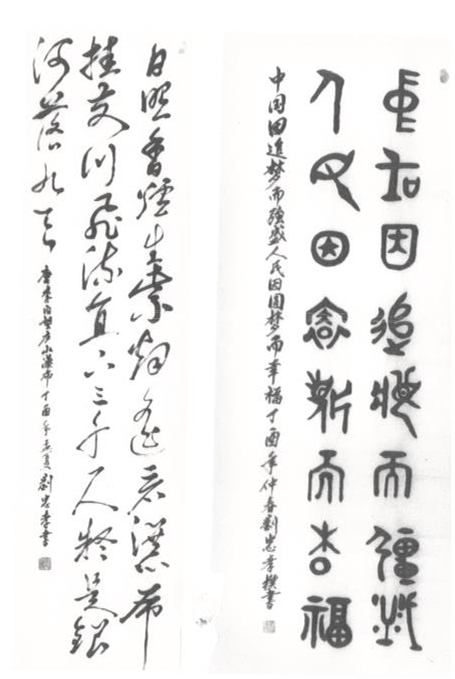 中国因追夢而彊盛
人民因圓夢而幸福
中国因追梦而强盛人民因圆梦而幸福丁酉年仲春劉忠孝撰書
日照香爐生紫烟遥看瀑布
挂前川飛流直下三千尺疑是銀
河落九天
唐李白望庐山瀑布丁酉年孟夏劉忠孝書